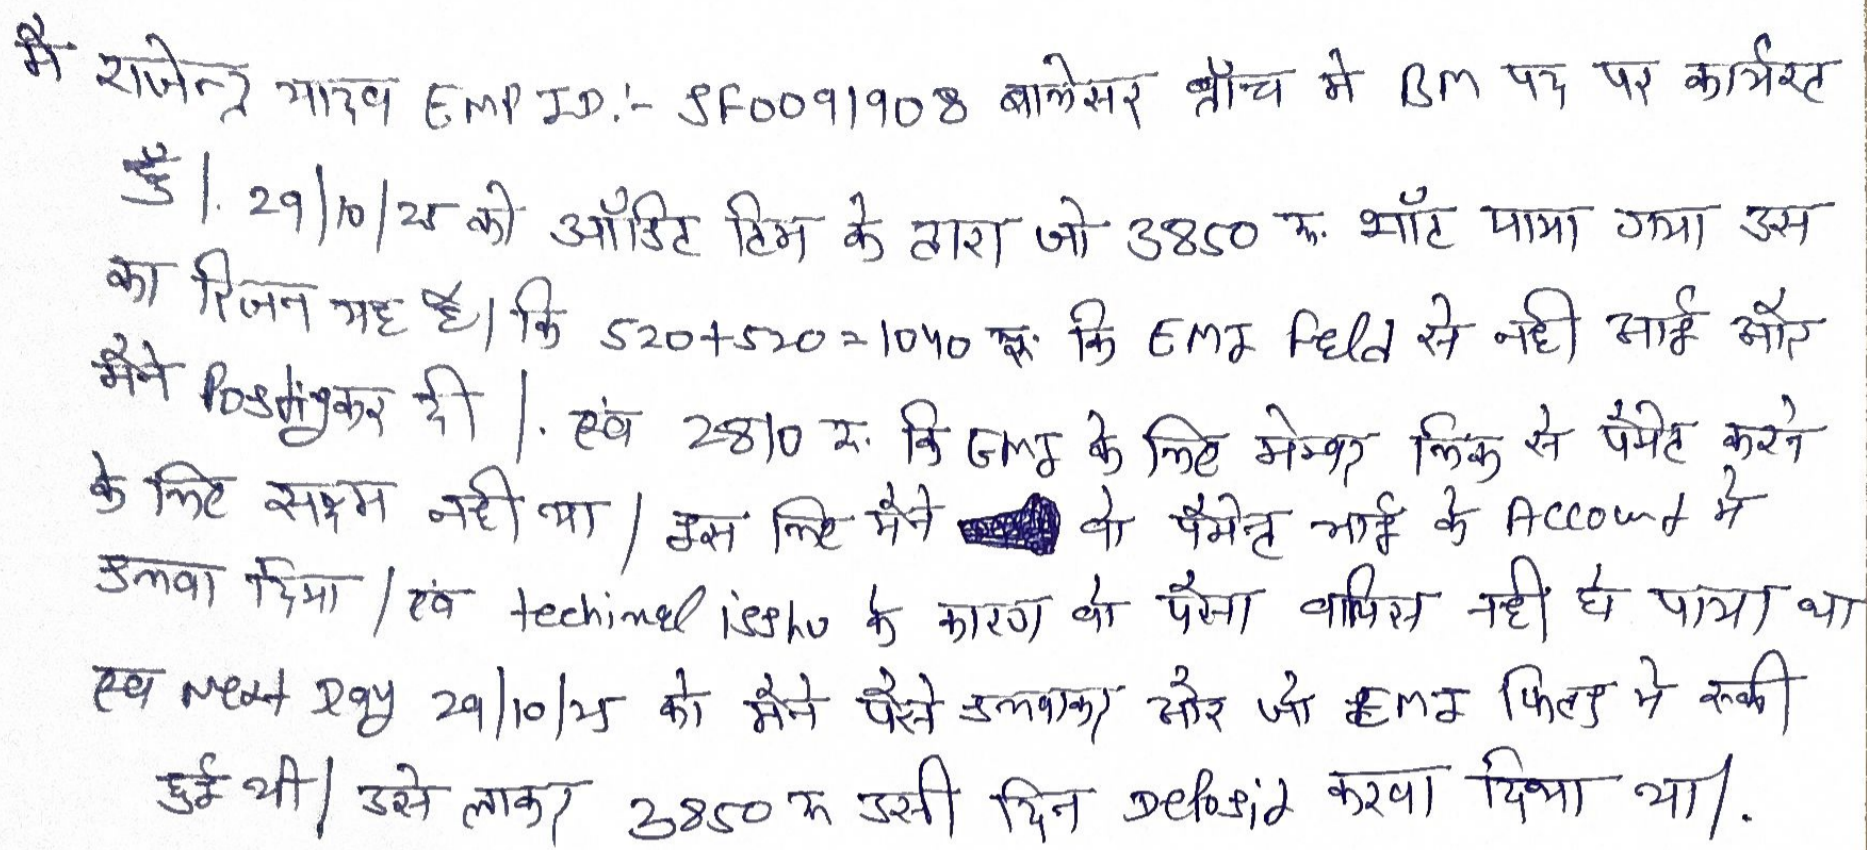 मै राजेन्द्र यादव EMP ID:- SF0091908 बालेसर ब्रॉच मे BM पद पर कार्यरत
हुँ |. 29/10/25 को ऑडिट टिम के द्वारा जो 3850 रू. शॉट पाया गया उस
का रिजन यह है| कि 520+520=1040 रू. कि EMI Feld से नही आई और
मैने Postingकर दी |. एवं 2810 रू. कि EMI के लिए मेम्बर लिंक से पैमेंट करने
के लिए सक्ष्म नही था | इस लिए मैने वो पैमेन्ट भाई के Account मे
डलवा दिया | एवं techinel isshu के कारण वो पैसा वापिस नही हो पाया था
एवं Next Day 29/10/25 को मैने पैसे डलवाकर और जो EMI फिल्ड मे रूकी
हुई थी| उसे लाकर 3850 रू उसी दिन Deposid करवा दिया था|.